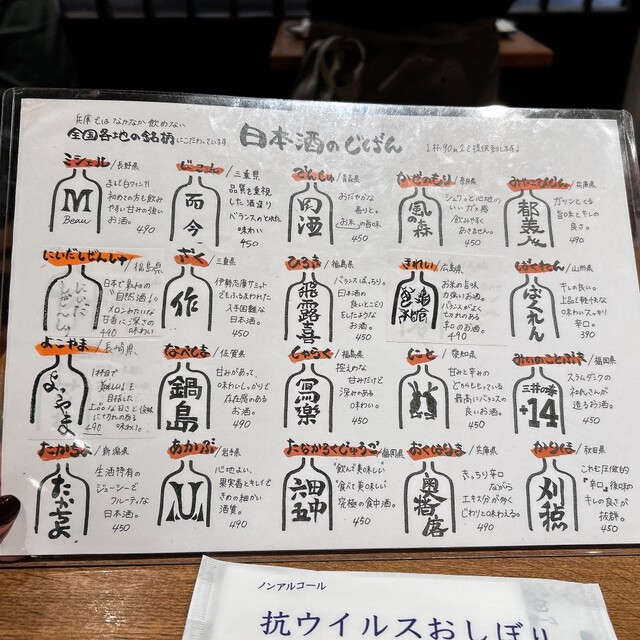 兵庫ではなかなか飲めない
全国各地の銘柄にこだわっています
日本酒のじどばん
1杯90mlで提供します♩
ミジェル/長野県
M
Beau
よもや白ワイン?!
初めての方も飲み
やすい甘みの強い
お酒。
490
じこん/三重県
而今
品質を重視
した酒造り
バランスのとれた
味わい
450
でんしゅ/青森県
田酒
おだやかな
香りと
お米の旨味
450
かぜのもり/奈良県
風の森
シュワっと心地の
いいガス感
飲みやすく
あきません。
450
みやこびじん/兵庫県
都美人
ガツンとくる
旨味とキレの
良さ。
490
にいだしぜんしゅ/福島県
にいだ
しぜんしゅ
日本で最初の
"自然酒!!"
メロンみたいな
甘香に深さの
490 味わい
ざく/三重県
作
伊勢志摩サミット
でもふるまわれた
入手困難な
日本酒。
450
ひろき/福島県
飛露喜
バランスばっちり。
日本酒の
良いとこどり
をしたような
お酒
450
きれい/広島県
亀齢
お米の旨味
力強いお酒。
バランスがよく
まとられている
辛口のお酒。
490
ばくれん/山形県
ばくれん
キレの良い。
上品で軽快な
味わいスッキリ
辛口。
390
よこやま/長崎県
よこやま
1杯目で
美味い!を
目指した、
上品な甘さと後味
にキレのある
490 味わい。
なべしま/佐賀県
鍋島
甘みがあって、
味わいしっかりと
存在感のある
お酒。
490
しゃらく/福島県
寫樂
控えめな
甘みだけど
深みのある
味わい。
450
にと/愛知県
甘みと辛みの
どちらももっている
最高にバランスの
良いお酒
450
みいのことぶき/福岡県
三井の寿
+14
スラムダンクの
社氏さんが
造るお酒。
450
たかちよ/新潟県
たかちよ
生酒特有の
ジューシーで
フルーティな
日本酒。
450
あかぶ/岩手県
心地よい、
果実香とキレイで
きめ細かい
酒質。
490
たなかろくじゅうご/福岡県
田中
六五
"飲んで美味しい"
"食べて美味しい"
究極の食中酒。
450
おくはりま/兵庫県
奥播磨
きっちり辛口
ながら
エキス分が多く
じわりと味わえる。
490
かりほ/秋田県
刈穂
これぞ圧倒的
『辛口』後味の
キレの良さが
抜群。
450
ノンアルコール
抗ウイルスおしぼり